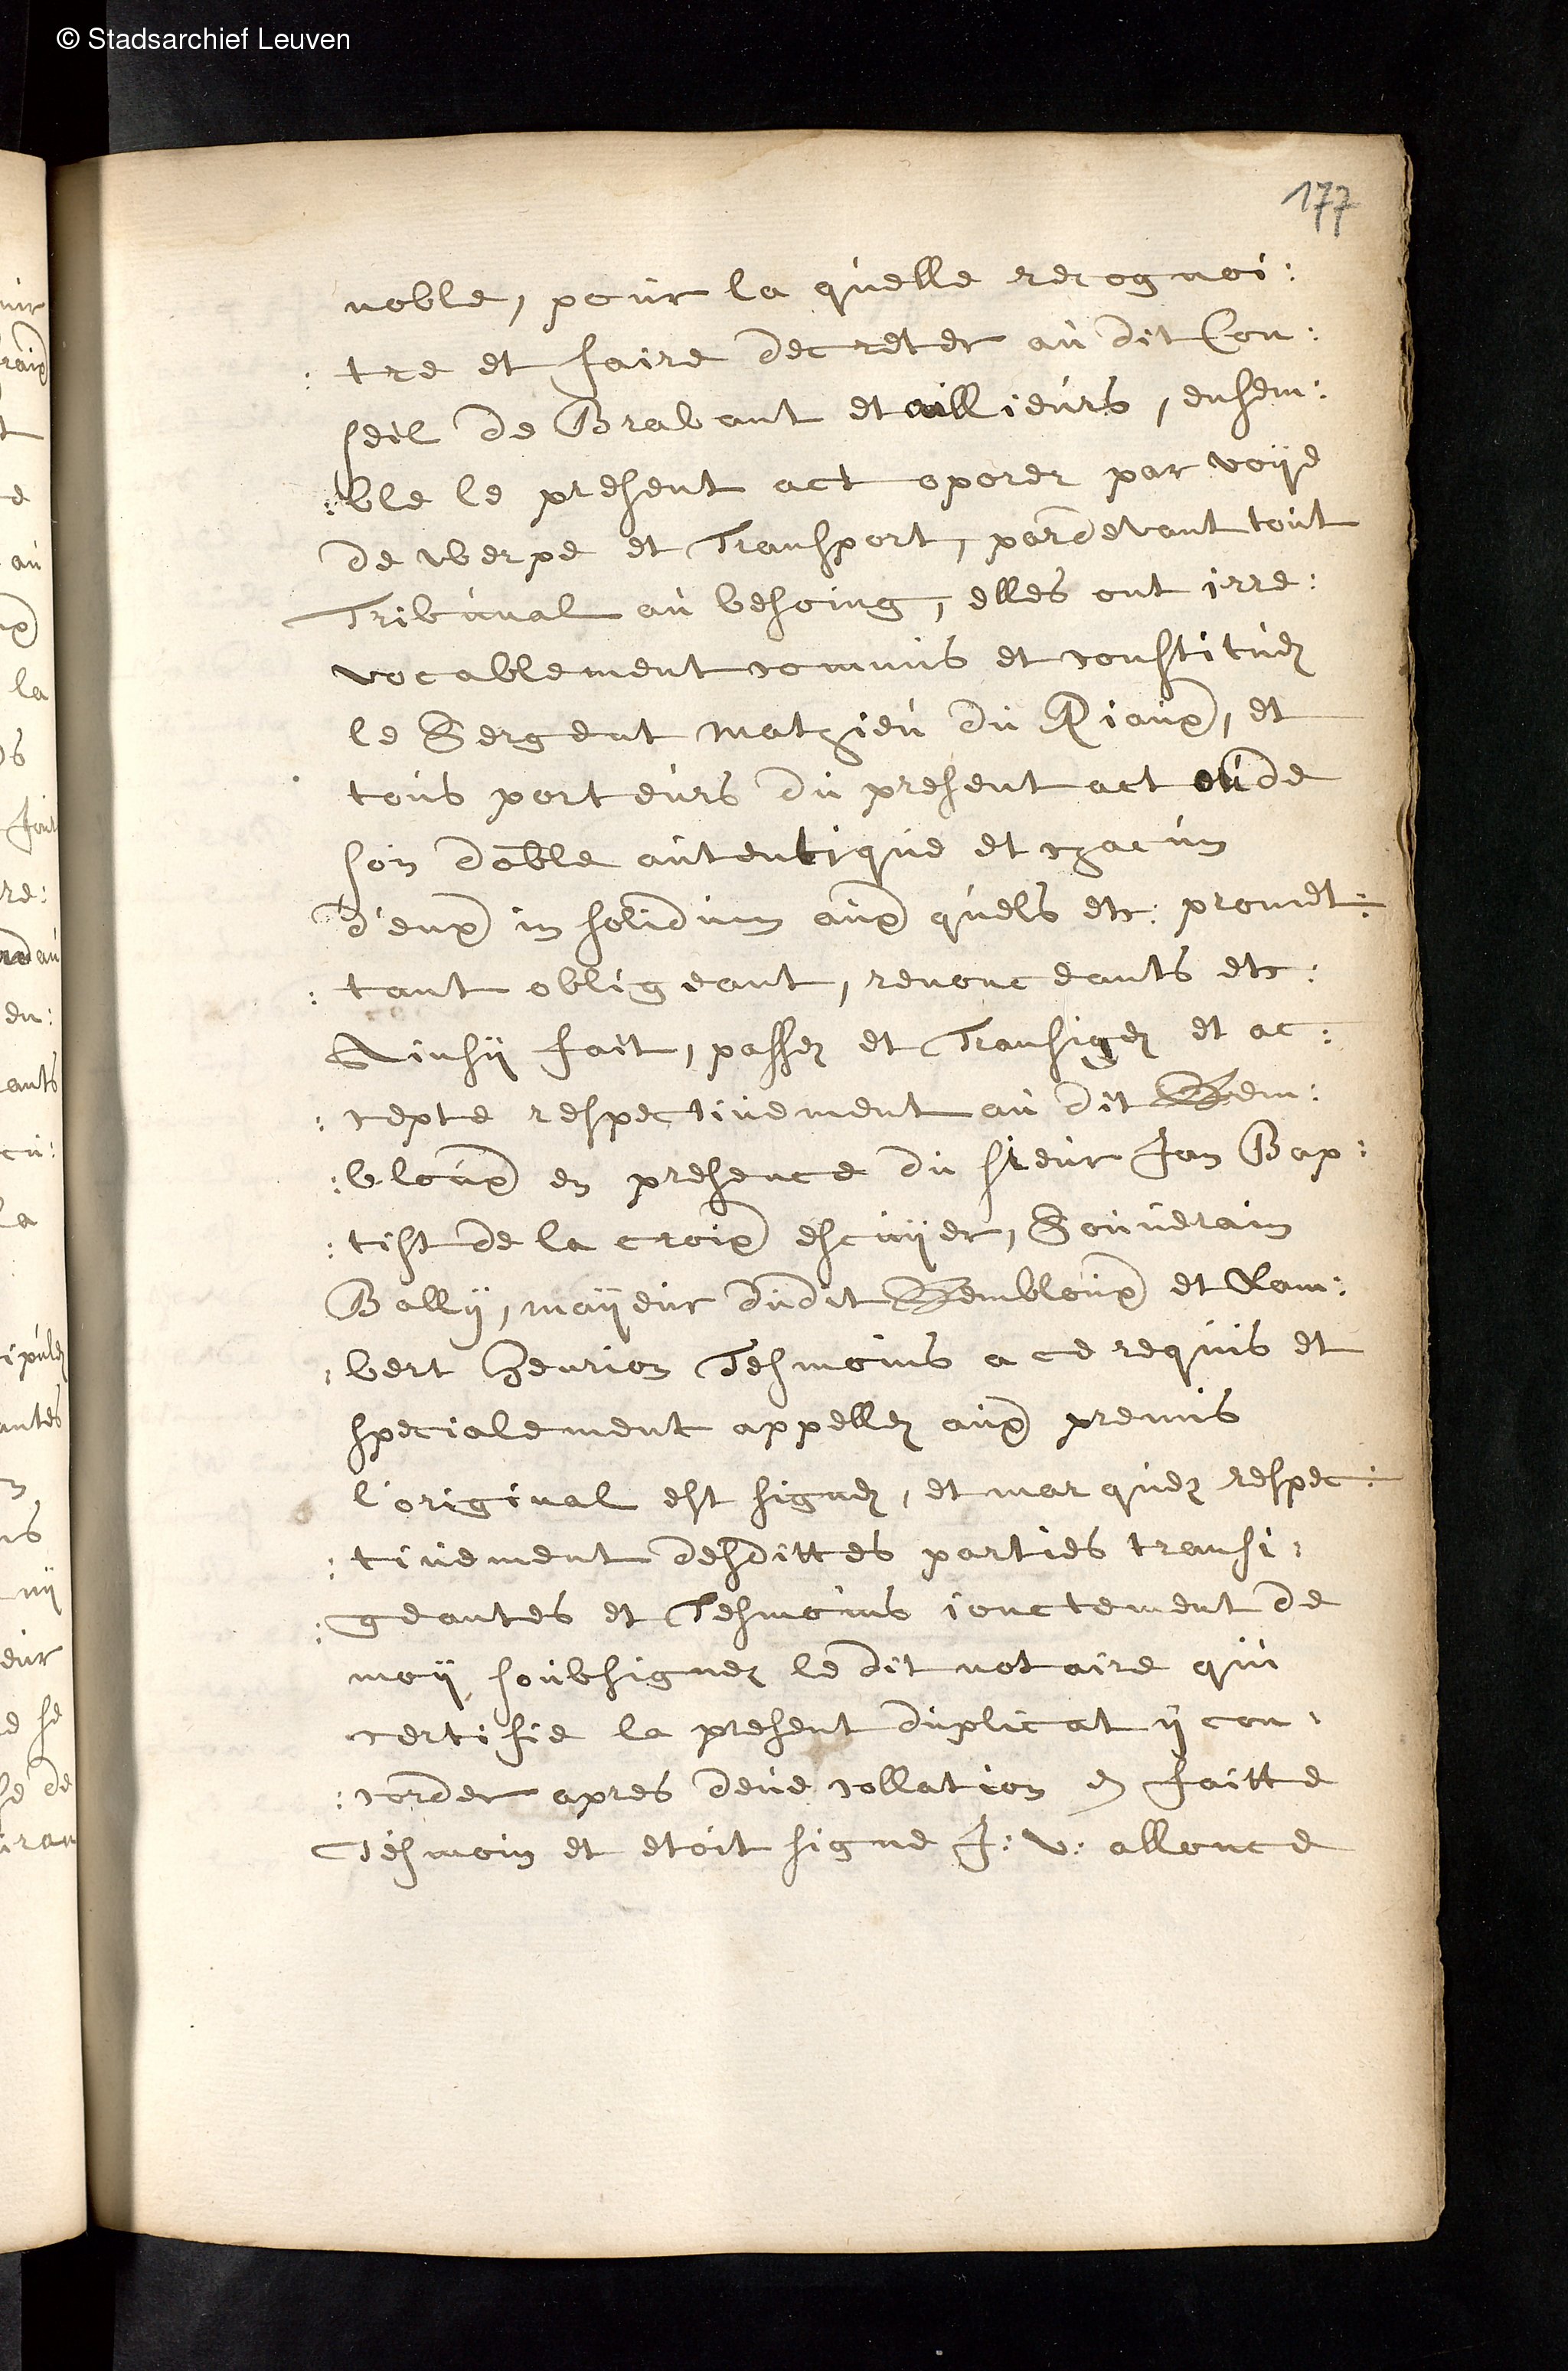 © Stadsarchief Leuven
177
noble, pour la quelle recognoi:
: tre et faire decreter au dit Con:
seil de Brabant et aillieurs, ensem:
:ble le present act oporer par voije
de werpe et Transport, pardevant tout
Tribunal au besoing, elles ont irre:
vocablement commis et constituez
le Sergent mathieu du Riaux, et
tous porteurs du present act ou de
son doble autentique et chacun
d'eux in solidum aux quels etc: promet:
: tant obligeant, renonceants etc:
Ainsÿ fait, passez et Transigez et ac:
: cepte respectivement au dit Gem:
:bloux en presence du sieur Jan Bap:
: tist de la croix escuÿer, Souverain
Ballÿ, maÿeur dudit Gembloux et Lam:
: bert henrion Tesmoins a ce requis et
specialement appellez aux premis
l'original est signez, et marquez respec:
: tivement desdittes parties transi:
: geantes et Tesmoins ionctement de
moÿ soubsignez le dit notaire qui
certifie la present duplicat ÿ con:
: corder apres deue collation en faitte
Tesmoin et etoit signe J: v: allonce